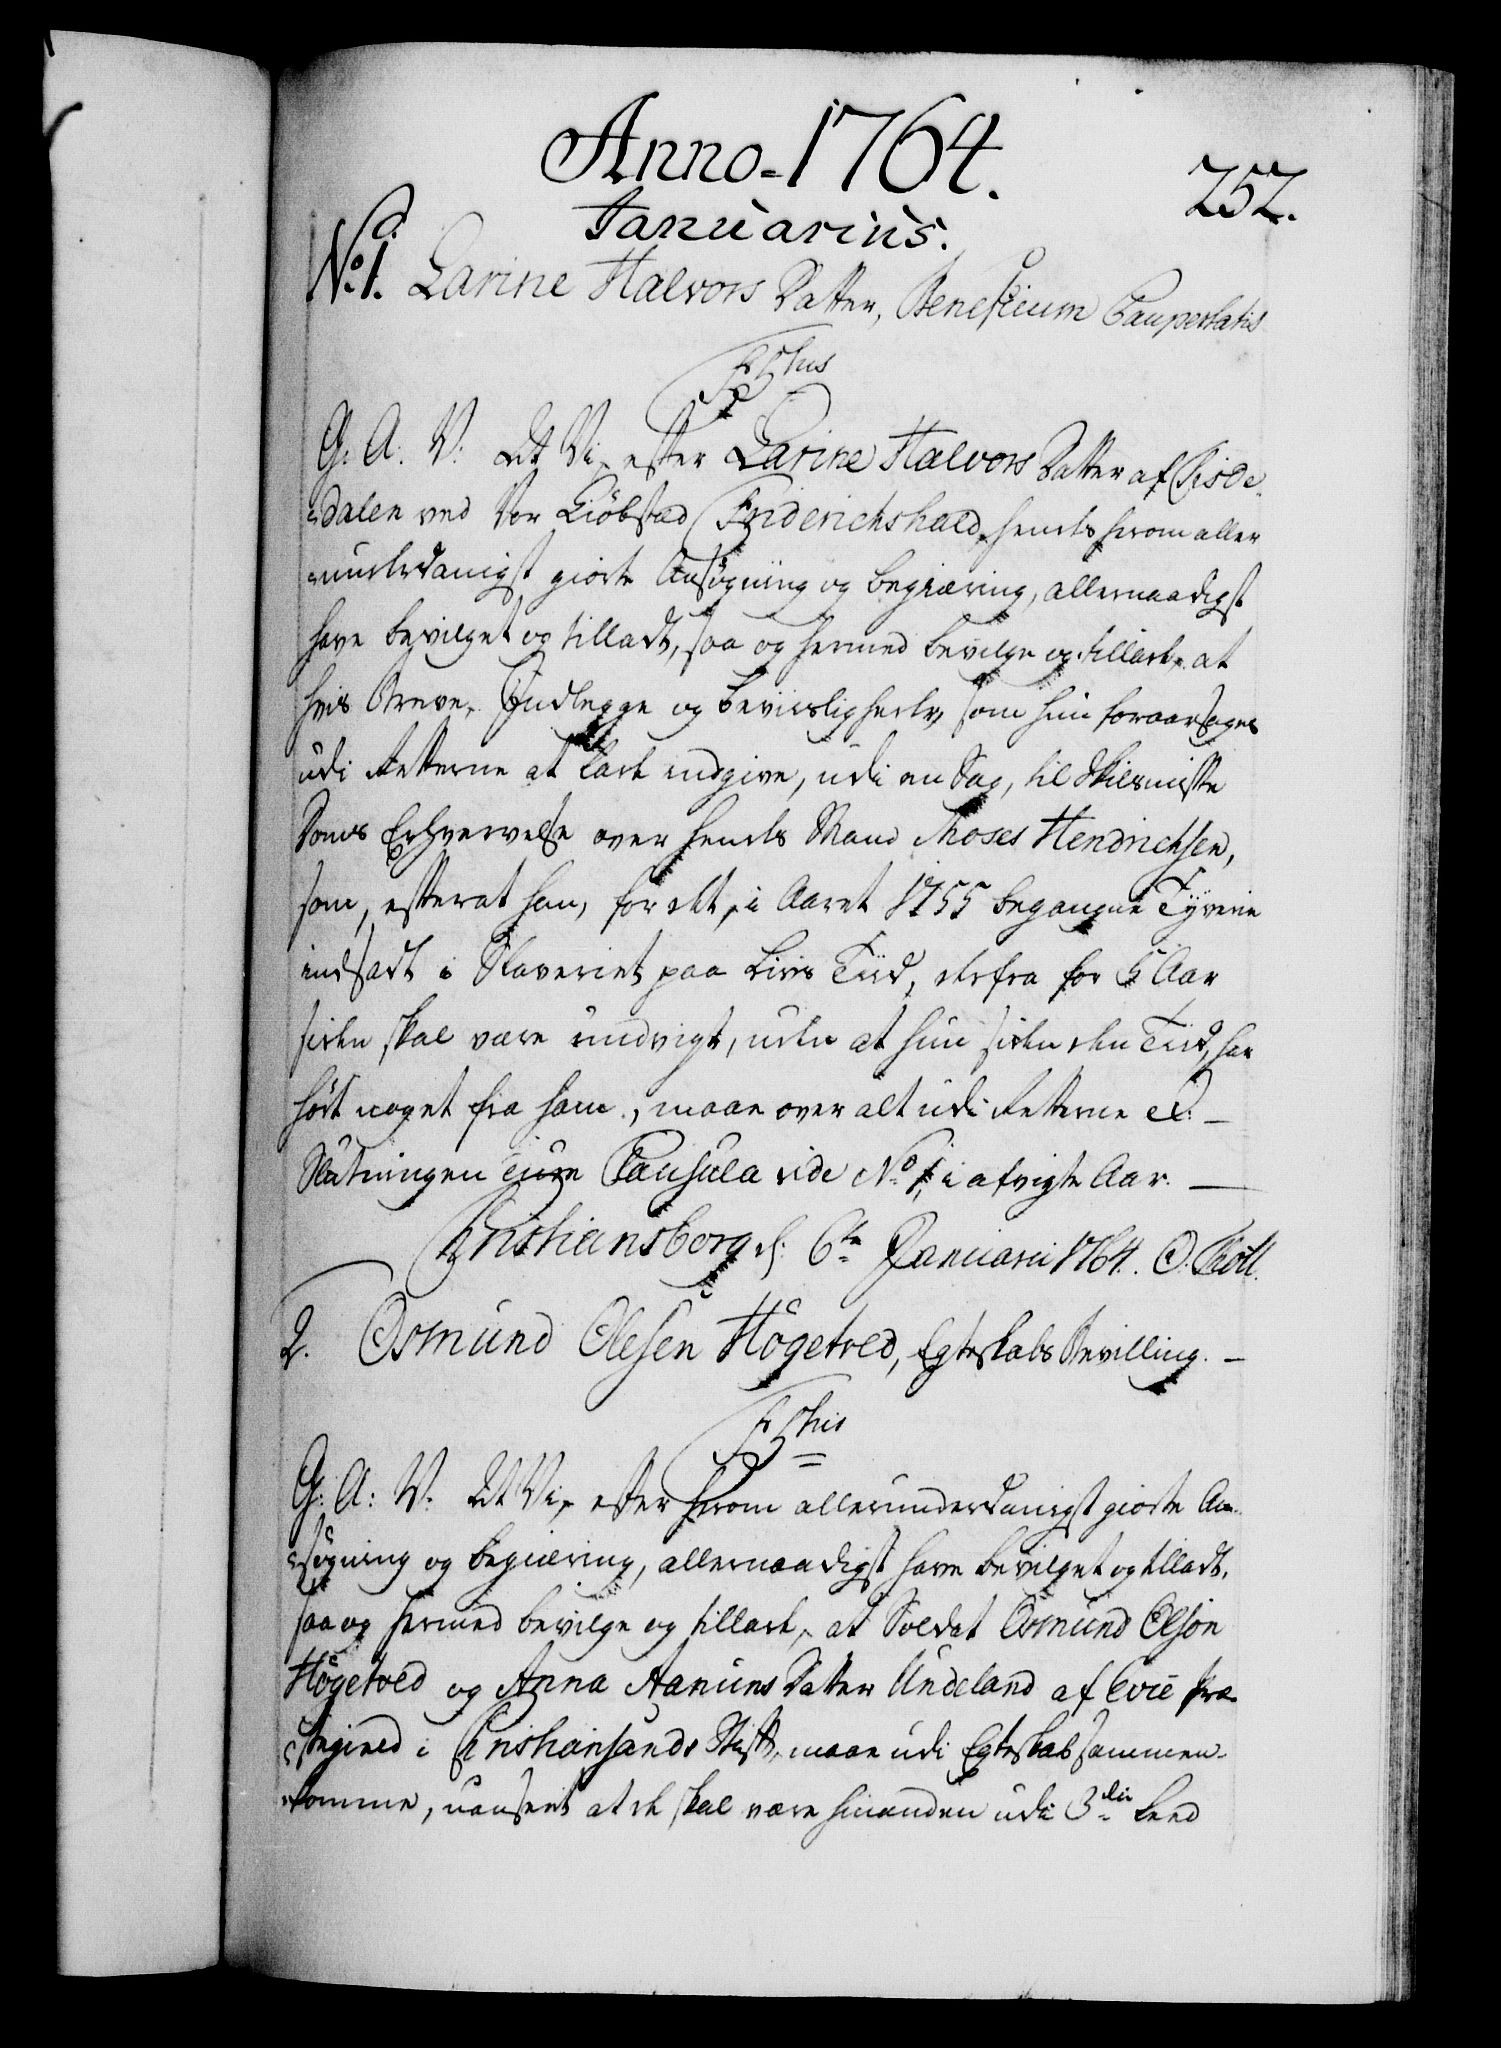 Anno 1764.
252.
Januarius.
No. 1. Karine Halvors Datter, Beneficium Paupertatis
F5thus
G: A: V: At Vi, efter Karine Halvors Datter af Tiste-
dalen ved Vor Kiöbstad Friderichshald, hendes herom aller
underdanigst giorte Ansøgning og begiæring, allernaadigst
have bevilget og tilladt, saa og hermed bevilge og tillade, at
hvis Breve, Indlegge og beviisligheder, som hun foraarsages
udi Retterne at lade indgive, udi en Sag, til Skilsmisse
Doms Erhvervelse over hendes Mand Moses Hendrichsen,
som, efterat han, for det, i Aaret 1755 begangne Tyverie
indsadt i Slaveriet paa Livs Tiid, derfra for 5 Aar
siden skal være undvigt, uden at hun siden den Tiid, har
hört noget fra ham, maae over alt udi Retterne &c: —
Slutningen Clausula vide No. 1, i afvigte Aar. —
Christiansborg d: 6te Januarii 1764. O. Thott.
2. Osmund Olesen Högetved, Egteskabs Bevilling. —
F5this
G: A: V: At Vi, efter herom allerunderdanigst giorte An-
søgning og begiæring, allernaadigst have bevilget og tilladt,
saa og hermed bevilge og tillade, at Soldat Osmund Olsön
Högetved og Anna Aanuns Datter Undeland af Evie Præ-
stegield i Christiansands Stift, maae udi Egteskab sammen-
komme, uanseet at de skal være hinanden udi 3die Leed